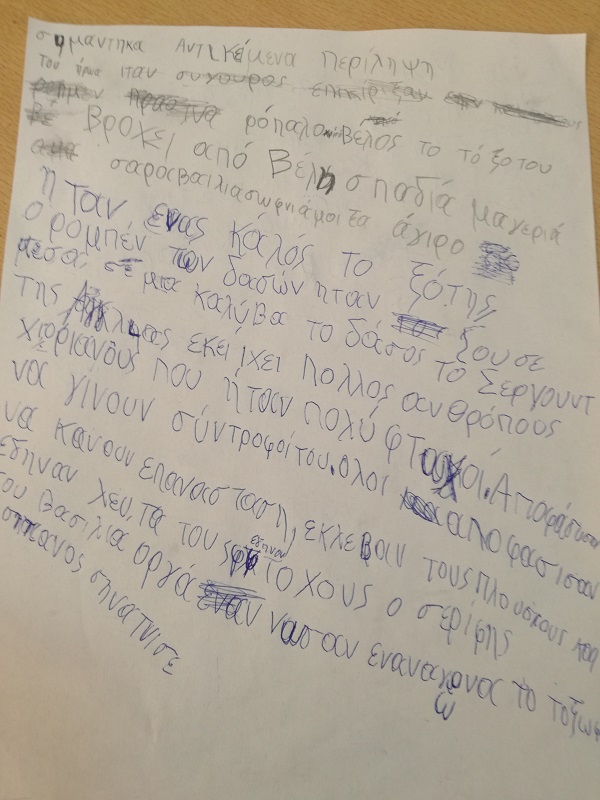 σημαντηκα Αντικέμενα περίληψη
του ήρωα ιταν σιγουρος
ρόπαλο Βέλος το τόξο του
Βροχεί από Βέλη σπαδιά μαγεριά
άγιρο
ήταν ένας κάλός τοξότης,
ο ρομπέν των δασών ηταν ζουσε
μέσα σε μια καλύβα το δάσος το Σεργουντ
της Αγκλιας εκεί ίχει πολλος ανθρόπους
χοριανους που ήταν πολύ φτωχοί. Αποφάσισαν
να γινουν σύντροφοί του. όλοι αποφασισαν
να κανουν επαναστασή, εκλεβαν τους πλουσιους και
εδηναν λευτα τους φτοχους ο σερίφης
του βασιλια οργάνοσαν εναν αγονα το τοξω
ω
σπανος σηνατισε